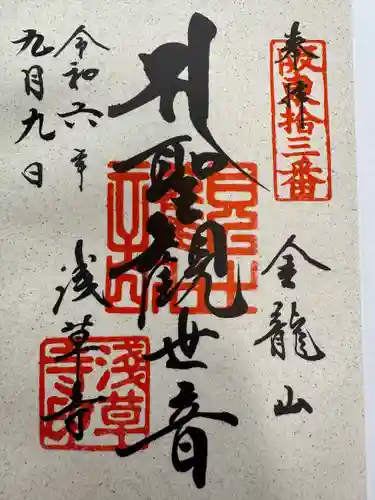 奉拝
坂東拾三番
金龍山
聖観世音
浅草寺
浅草寺印
令和六年
九月九日